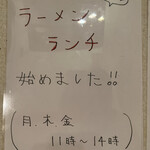 ラーメン
ランチ
始めました!!
(月.木金
11時～14時)